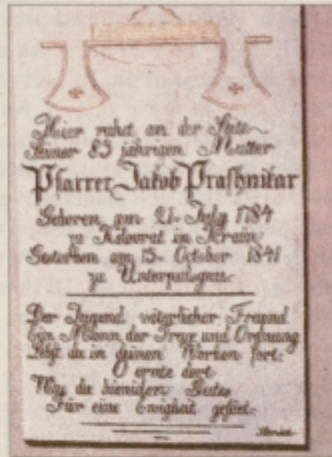 Hier ruht an der Seite
Seiner 83 jährigen Mutter
Pfarrer Jakob Praschnikar
Geboren am 21. July 1784
zu in Krain
Gestorben am 15. October 1841
zu
Der Jugend väterlicher Freund
Ein Mann der Treue und Ordnung
Lebst du in deinen Werken fort.
ernte dort
Was du hienieden Gutes
Für eine Ewigkeit gesäet.